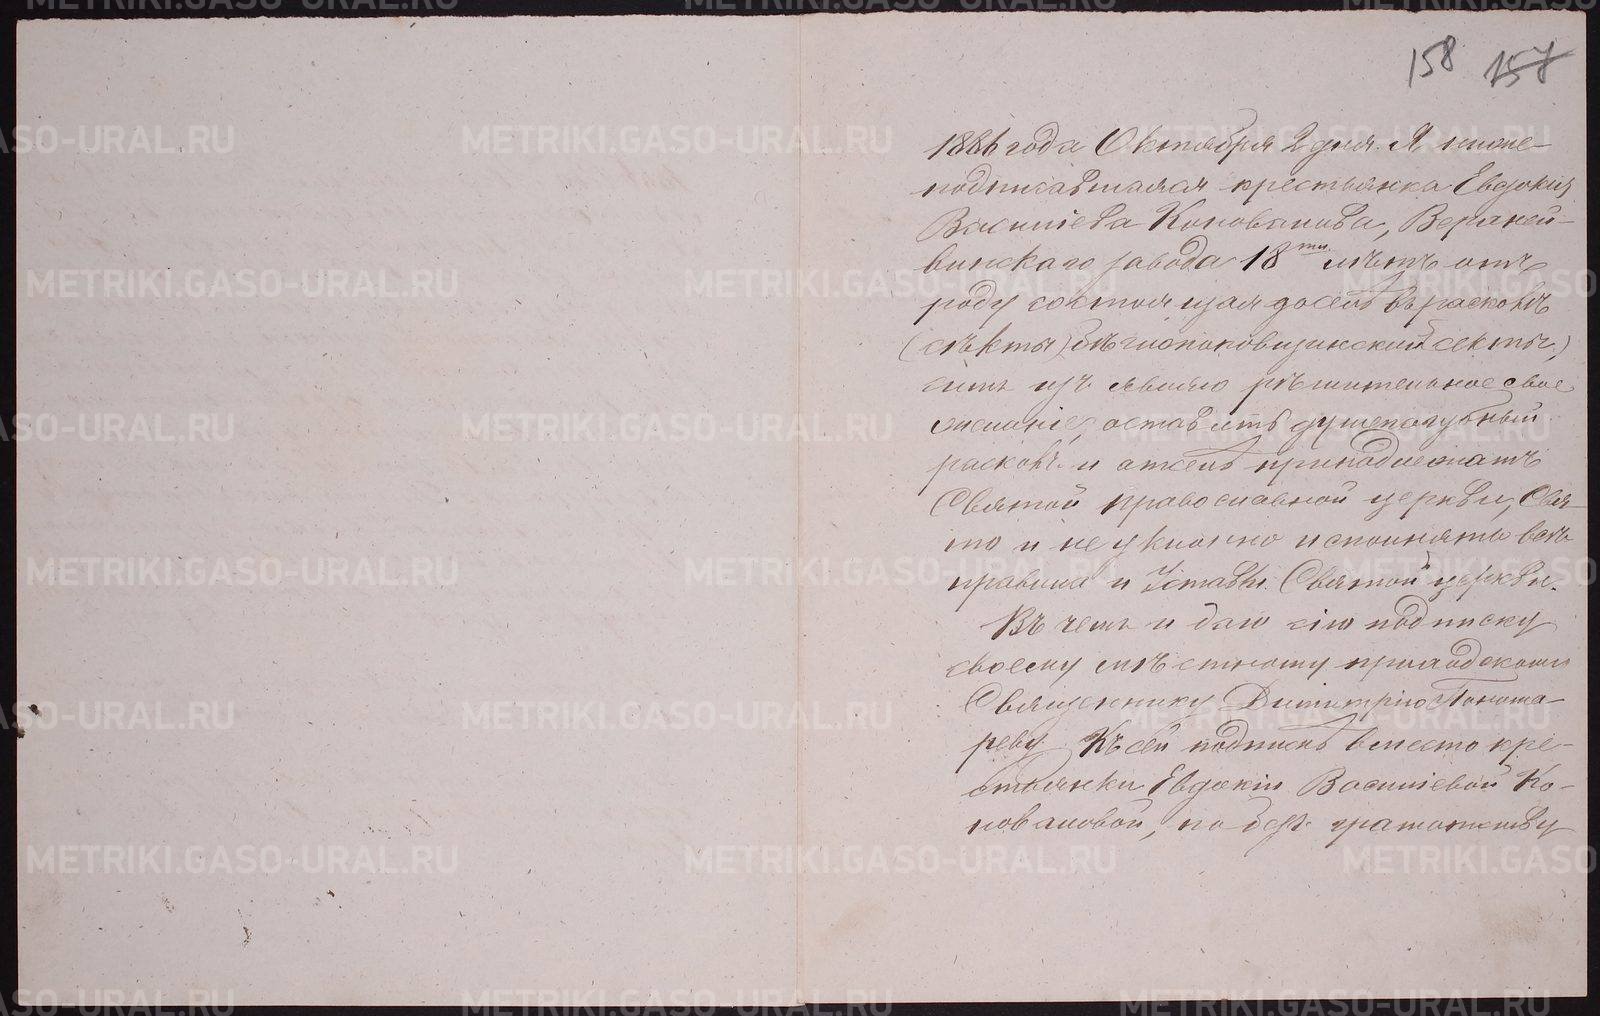 158 157
1886 года Октября 2 дня. Я ниже-
подписавшаяся крестьянка Евдокия
Васильева Коновалова, Верхней-
винскаго завода 18ти лѣтъ отъ
роду состоящая доселѣ въ расколѣ
(секты) бѣглопоповщинской секты,
симъ изъявляю рѣшительное свое
желаніе, оставить душепагубный
расколъ и отселѣ принадлежать
Святой православной церкви, Свя-
то и неуклонно исполнять всѣ
правила и Уставы Святой церкви.
Въ чемъ и даю сію подписку
своему мѣстному приходскому
Священнику Димитрію Понома-
реву Къ сей подпискѣ вместо кре-
стьянки Евдокіи Васильевой Ко-
новаловой, по безграмотству
METRIKI.GASO-URAL.RU